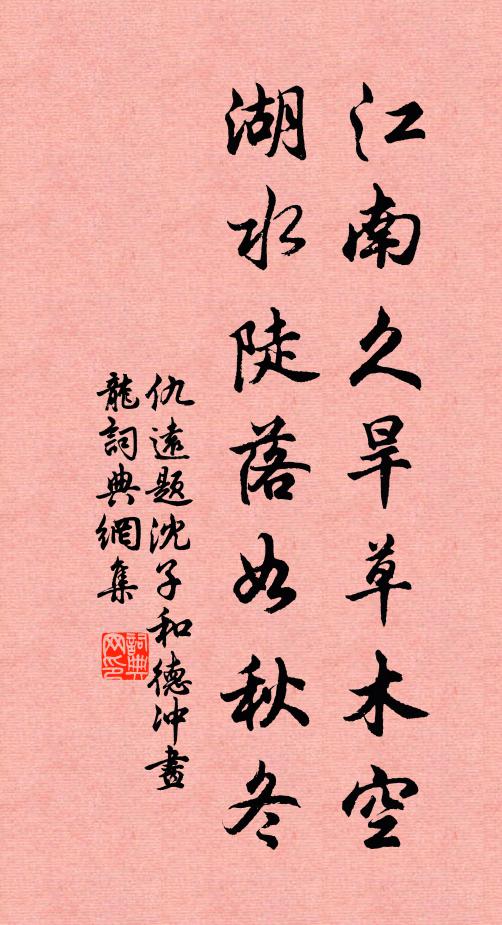 江南久旱草木空
湖水陡落如秋冬
仇遠題沈子和德冲畫
龍詞典網集
詞典网印